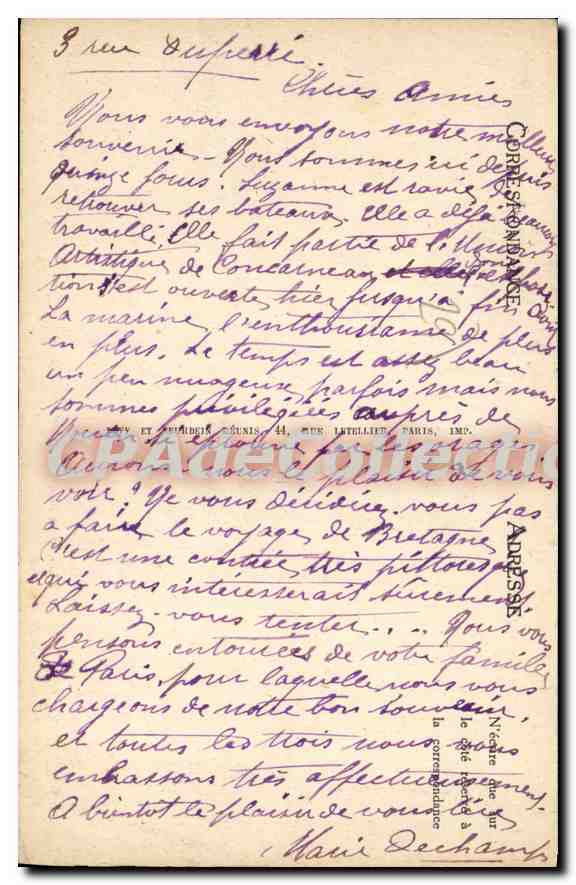 3 rue Duperré.
Chères Amies
Nous vous envoyons notre meilleur
souvenir - Nous sommes ici depuis
quinze jours. Suzanne est ravie de
retrouver ses bateaux. Elle a déjà beaucoup
travaillé, Elle fait partie de l'Union
Artistique de Concarneau dont l'exposi
tion s'est ouverte hier jusqu'à fin Août
La marine l'enthousiasme de plus
en plus. Le temps est assez beau
un peu nuageux parfois mais nous
sommes privilégiées auprès de
par les orages
Aurons-nous le plaisir de vous
voir? Ne vous décidirez-vous pas
à faire le voyage de Bretagne
C'est une contrée très pittoresque
et qui vous intéresserait sûrement
Laissez-vous tenter.... Nous vous
pensons entourées de votre famille
de Paris, pour laquelle nous vous
chargeons de notre bon souvenir,
et toutes les trois nous vous
embrassons très affectueusement.
A bientôt le plaisir de vous lire
Marie Dechamps
CORRESPONDANCE
ADRESSE
N'écrire que sur
le côté réservé à
la correspondance
LÉVY ET NEURDEIN RÉUNIS, 44, RUE LETELLIER, PARIS, IMP.
20
CPADeCollection